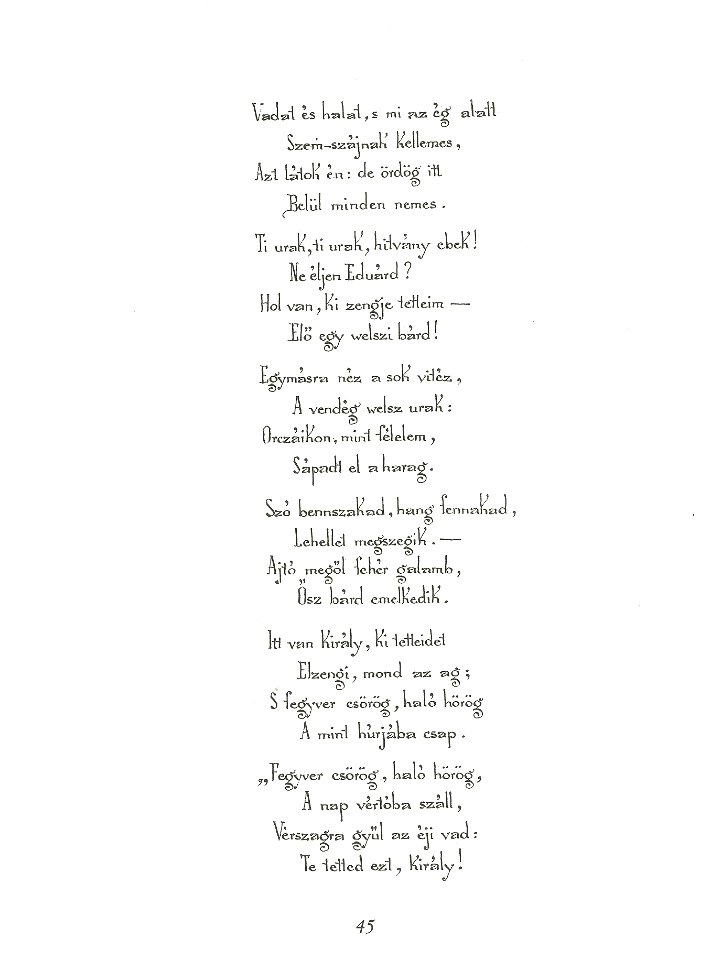 Vadat és halat, s mi az ég alatt
Szem-szájnak kellemes,
Azt látok én: de ördög itt
Belül minden nemes.
Ti urak, ti urak, hitvány ebek!
Ne éljen Eduárd?
Hol van, ki zengje tetteim —
Elő egy welszi bárd!
Egymásra néz a sok vitéz,
A vendég welsz urak:
Orczáikon, mint félelem,
Sápadt el a harag.
Szó bennszakad, hang fennakad,
Lehellet megszegik. —
Ajtó megöl fehér galamb,
Ősz bárd emelkedik.
Itt van király, ki tetteidet
Elzengi, mond az agg;
S fegyver csörög, haló hörög
A mint húrjába csap.
„Fegyver csörög, haló hörög,
A nap vértóba száll,
Vérszagra gyűl az éji vad:
Te tetted ezt, király!
45